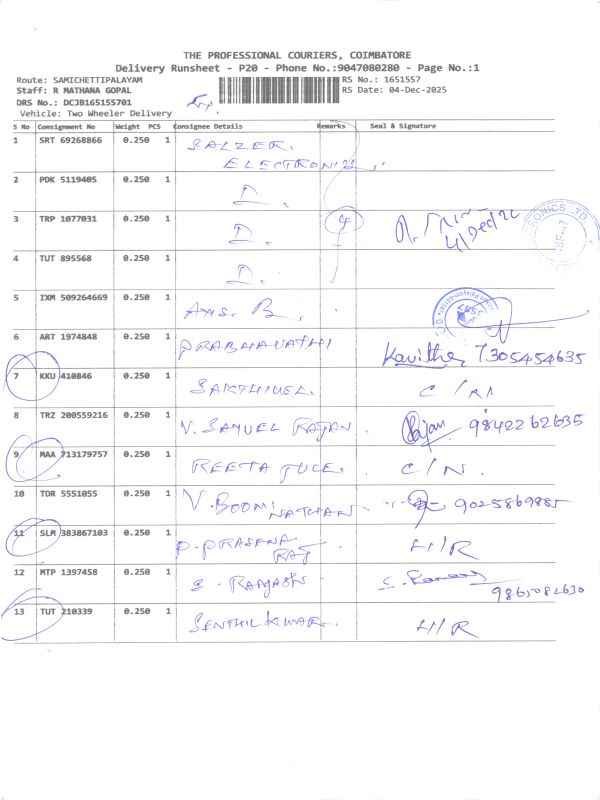 THE PROFESSIONAL COURIERS, COIMBATORE
Delivery Runsheet - P20 - Phone No.:9047080280 - Page No.:1
Route: SAMICHETTIPALAYAM RS No.: 1651557
Staff: R MATHANA GOPAL RS Date: 04-Dec-2025
DRS No.: DCJB165155701
Vehicle: Two Wheeler Delivery
S No Consignment No Weight PCS Consignee Details Remarks Seal & Signature
1 SRT 69268866 0.250 1 SALZER
ELECTRONICS
2 PDK 5119405 0.250 1 D.
3 TRP 1077031 0.250 1 D. 4
4 TUT 895568 0.250 1 D.
5 IXM 509264669 0.250 1 AXIS. B.
6 ART 1974848 0.250 1 PRABHAVATHI Kavitha 7305454635
7 KKU 410846 0.250 1 SAKTHIVEL C / RI
8 TRZ 200559216 0.250 1 V. SAMUEL RAJAN Rajan 9842262635
9 MAA 713179757 0.250 1 REETA C / N.
10 TDR 5551055 0.250 1 V. BOOMI 9025869885
NATHAN
11 SLM 383867103 0.250 1 P. PRASANA H/R
RAJ
12 MTP 1397458 0.250 1 S.
9865082630
13 TUT 210339 0.250 1 SENTHIL KUMAR. H/R